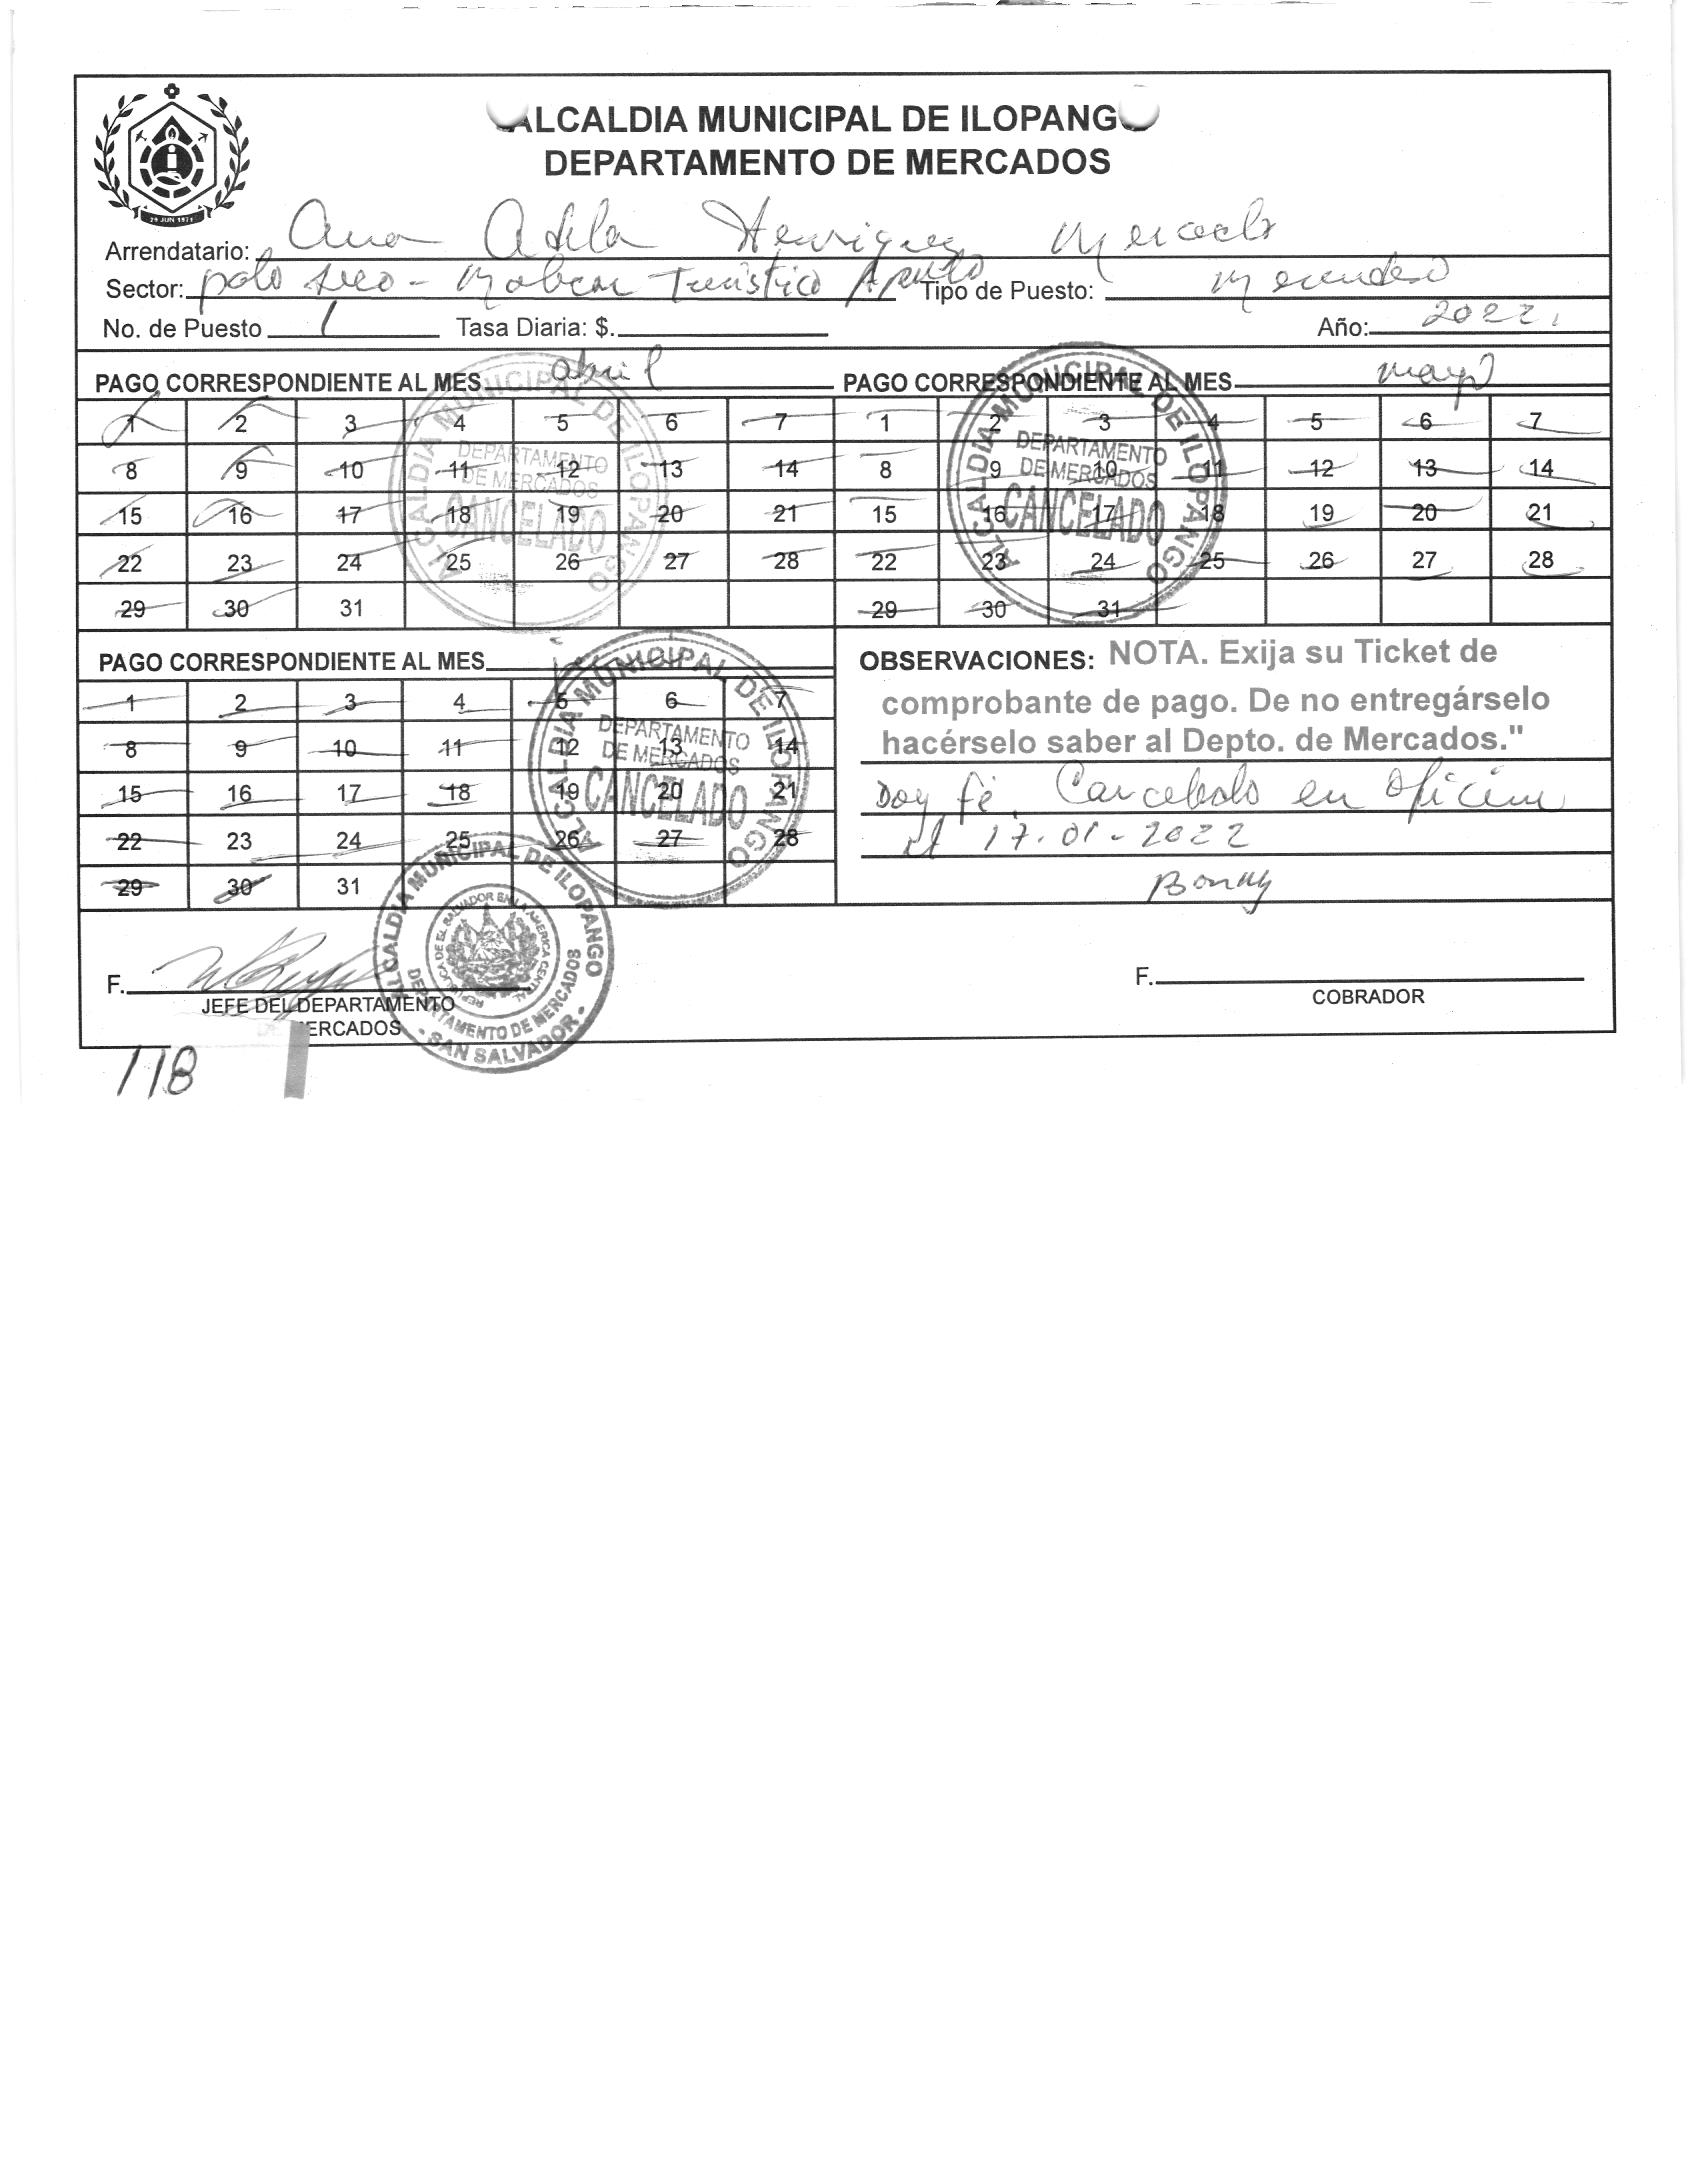 ALCALDIA MUNICIPAL DE ILOPANGO
DEPARTAMENTO DE MERCADOS
29 JUN 1971
Arrendatario: Ana Adela Henriquez Mercado
Sector: palo seco - Malecon Turístico Apulo Tipo de Puesto:
No. de Puesto 1 Tasa Diaria: $. Año: 2022.
PAGO CORRESPONDIENTE AL MES abril
1 2 3 4 5 6 7
8 9 10 11 12 13 14
15 16 17 18 19 20 21
22 23 24 25 26 27 28
29 30 31
ALCALDIA MUNICIPAL DE ILOPANGO
DEPARTAMENTO
DE MERCADOS
CANCELADO
PAGO CORRESPONDIENTE AL MES mayo
1 2 3 4 5 6 7
8 9 10 11 12 13 14
15 16 17 18 19 20 21
22 23 24 25 26 27 28
29 30 31
ALCALDIA MUNICIPAL DE ILOPANGO
DEPARTAMENTO
DE MERCADOS
CANCELADO
PAGO CORRESPONDIENTE AL MES
1 2 3 4 5 6 7
8 9 10 11 12 13 14
15 16 17 18 19 20 21
22 23 24 25 26 27 28
29 30 31
ALCALDIA MUNICIPAL DE ILOPANGO
DEPARTAMENTO
DE MERCADOS
CANCELADO
OBSERVACIONES: NOTA. Exija su Ticket de
comprobante de pago. De no entregárselo
hacérselo saber al Depto. de Mercados."
Doy fé. Cancelado en Oficina
el 17-01-2022
F.
JEFE DEL DEPARTAMENTO
DE MERCADOS
ALCALDIA MUNICIPAL DE ILOPANGO
REPUBLICA DE EL SALVADOR EN LA AMERICA CENTRAL
DEPARTAMENTO DE MERCADOS
SAN SALVADOR
F.
COBRADOR
118